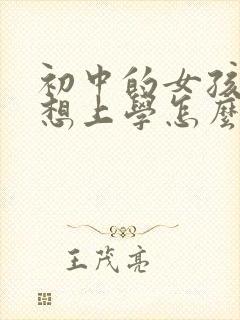 初中的女孩
想上學怎麼
王茂亮